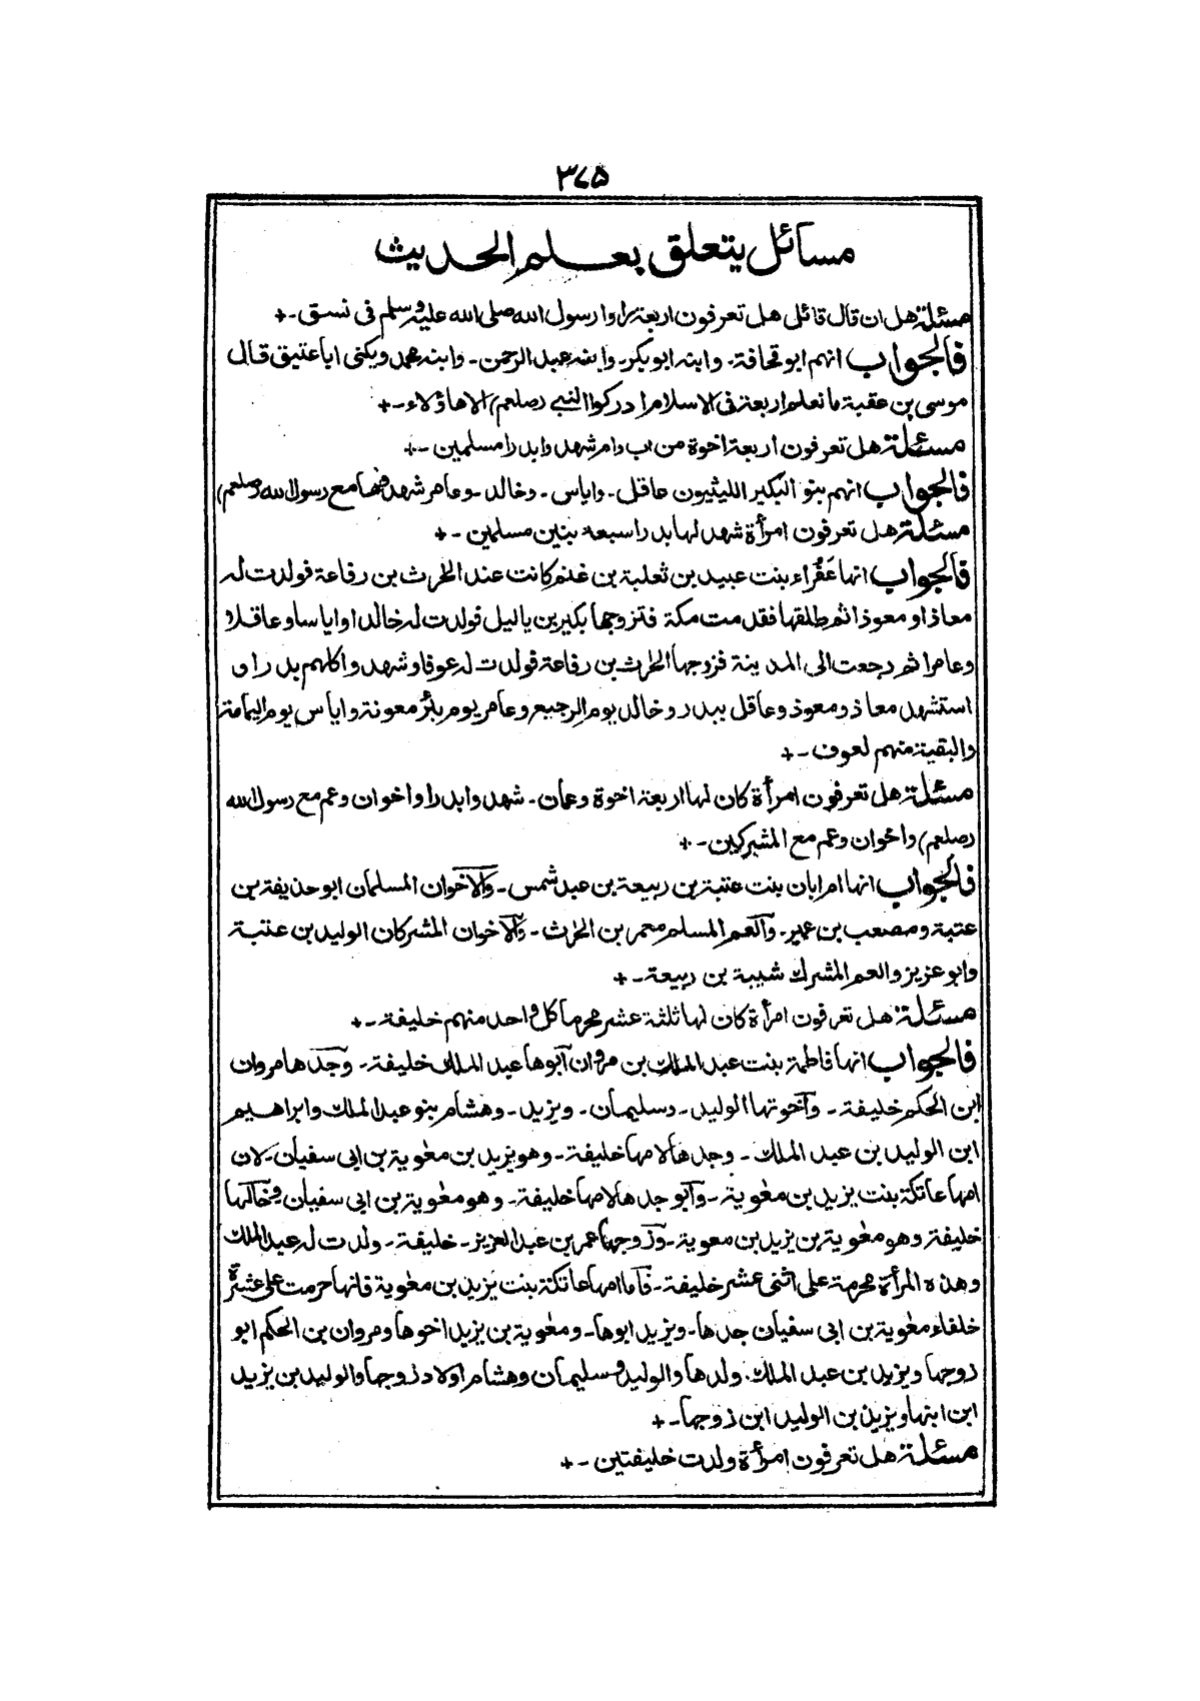 ٣٧٥
مسائل يتعلق بعلم الحديث
مسئلة هل ان قال قائل هل تعرفون اربعة راوا رسول الله صلى الله عليه وسلم فى نسق -+
فالجواب انهم ابو قحافة - وابنه ابو بكر - وابنه عبد الرحمن - وابنه محمد ويكنى ابا عتيق قال
موسى بن عقبة ما نعلم اربعة فى الاسلام ادركوا النبى (صلعم) الا هاؤلاء -+
مسئلة هل تعرفون اربعة اخوة من اب وام شهدوا بدرا مسلمين -+
فالجواب انهم بنو البكير الليثيون عاقل - واياس - وخالد - وعامر شهد فيها مع رسول الله (صلعم)
مسئلة هل تعرفون امرأة شهد لها بدرا سبعة بنين مسلمين -+
فالجواب انها عَفْراء بنت عبيد بن ثعلبة بن غنم كانت عند الحٰرث بن رفاعة فولدت له
معاذا و معوذا ثم طلقها فقدمت مكة فتزوجها بكير بن ياليل فولدت له خالدا واياسا وعاقلا
وعامرا ثم رجعت الى المدينة فزوجها الحٰرث بن رفاعة فولدت له عوفا وشهدوا كلهم بدرا و
استشهد معاذ ومعوذ وعاقل ببدر وخالد يوم الرجيع وعامر يوم بئر معونة واياس يوم اليمامة
والبقية منهم لعوف -+
مسئلة هل تعرفون امرأة كان لها اربعة اخوة وعمان - شهدوا بدرا واخوان وعم مع رسول الله
(صلعم) واخوان وعم مع المشركين -+
فالجواب انها ام ابان بنت عتبة بن ربيعة بن عبد شمس - والاخوان المسلمان ابو حذيفة بن
عتبة ومصعب بن عمير - والعم المسلم معمر بن الحٰرث - والاخوان المشركان الوليد بن عتبة
وابو عزيز والعم المشرك شيبة بن ربيعة -+
مسئلة هل تعرفون امرأة كان لها ثلثة عشر محرما كل واحد منهم خليفة -+
فالجواب انها فاطمة بنت عبد الملك بن مروان ابوها عبد الملك خليفة - وجدها مروان
ابن الحكم خليفة - واخوتها الوليد - وسليمان - ويزيد - وهشام بنو عبد الملك وابراهيم
ابن الوليد بن عبد الملك - وجدها لامها خليفة - وهو يزيد بن معٰوية بن ابى سفيان - لان
امها عاتكة بنت يزيد بن معٰوية - وابو جدها لامها خليفة - وهو معٰوية بن ابى سفيان وخالها
خليفة وهو معٰوية بن يزيد بن معوية - وزوجها عمر بن عبد العزيز - خليفة - ولدت له عبد الملك
وهذه المرأة محرمة على اثنى عشر خليفة - فاما امها عاتكة بنت يزيد بن معٰوية فانها حرمت على عشرة
خلفاء معٰوية بن ابى سفيان جدها - ويزيد ابوها - ومعٰوية بن يزيد اخوها ومروان بن الحكم ابو
زوجها ويزيد بن عبد الملك ولدها والوليد وسليمان وهشام اولاد زوجها والوليد بن يزيد
ابن ابنها ويزيد بن الوليد ابن زوجها -+
مسئلة هل تعرفون امرأة ولدت خليفتين -+